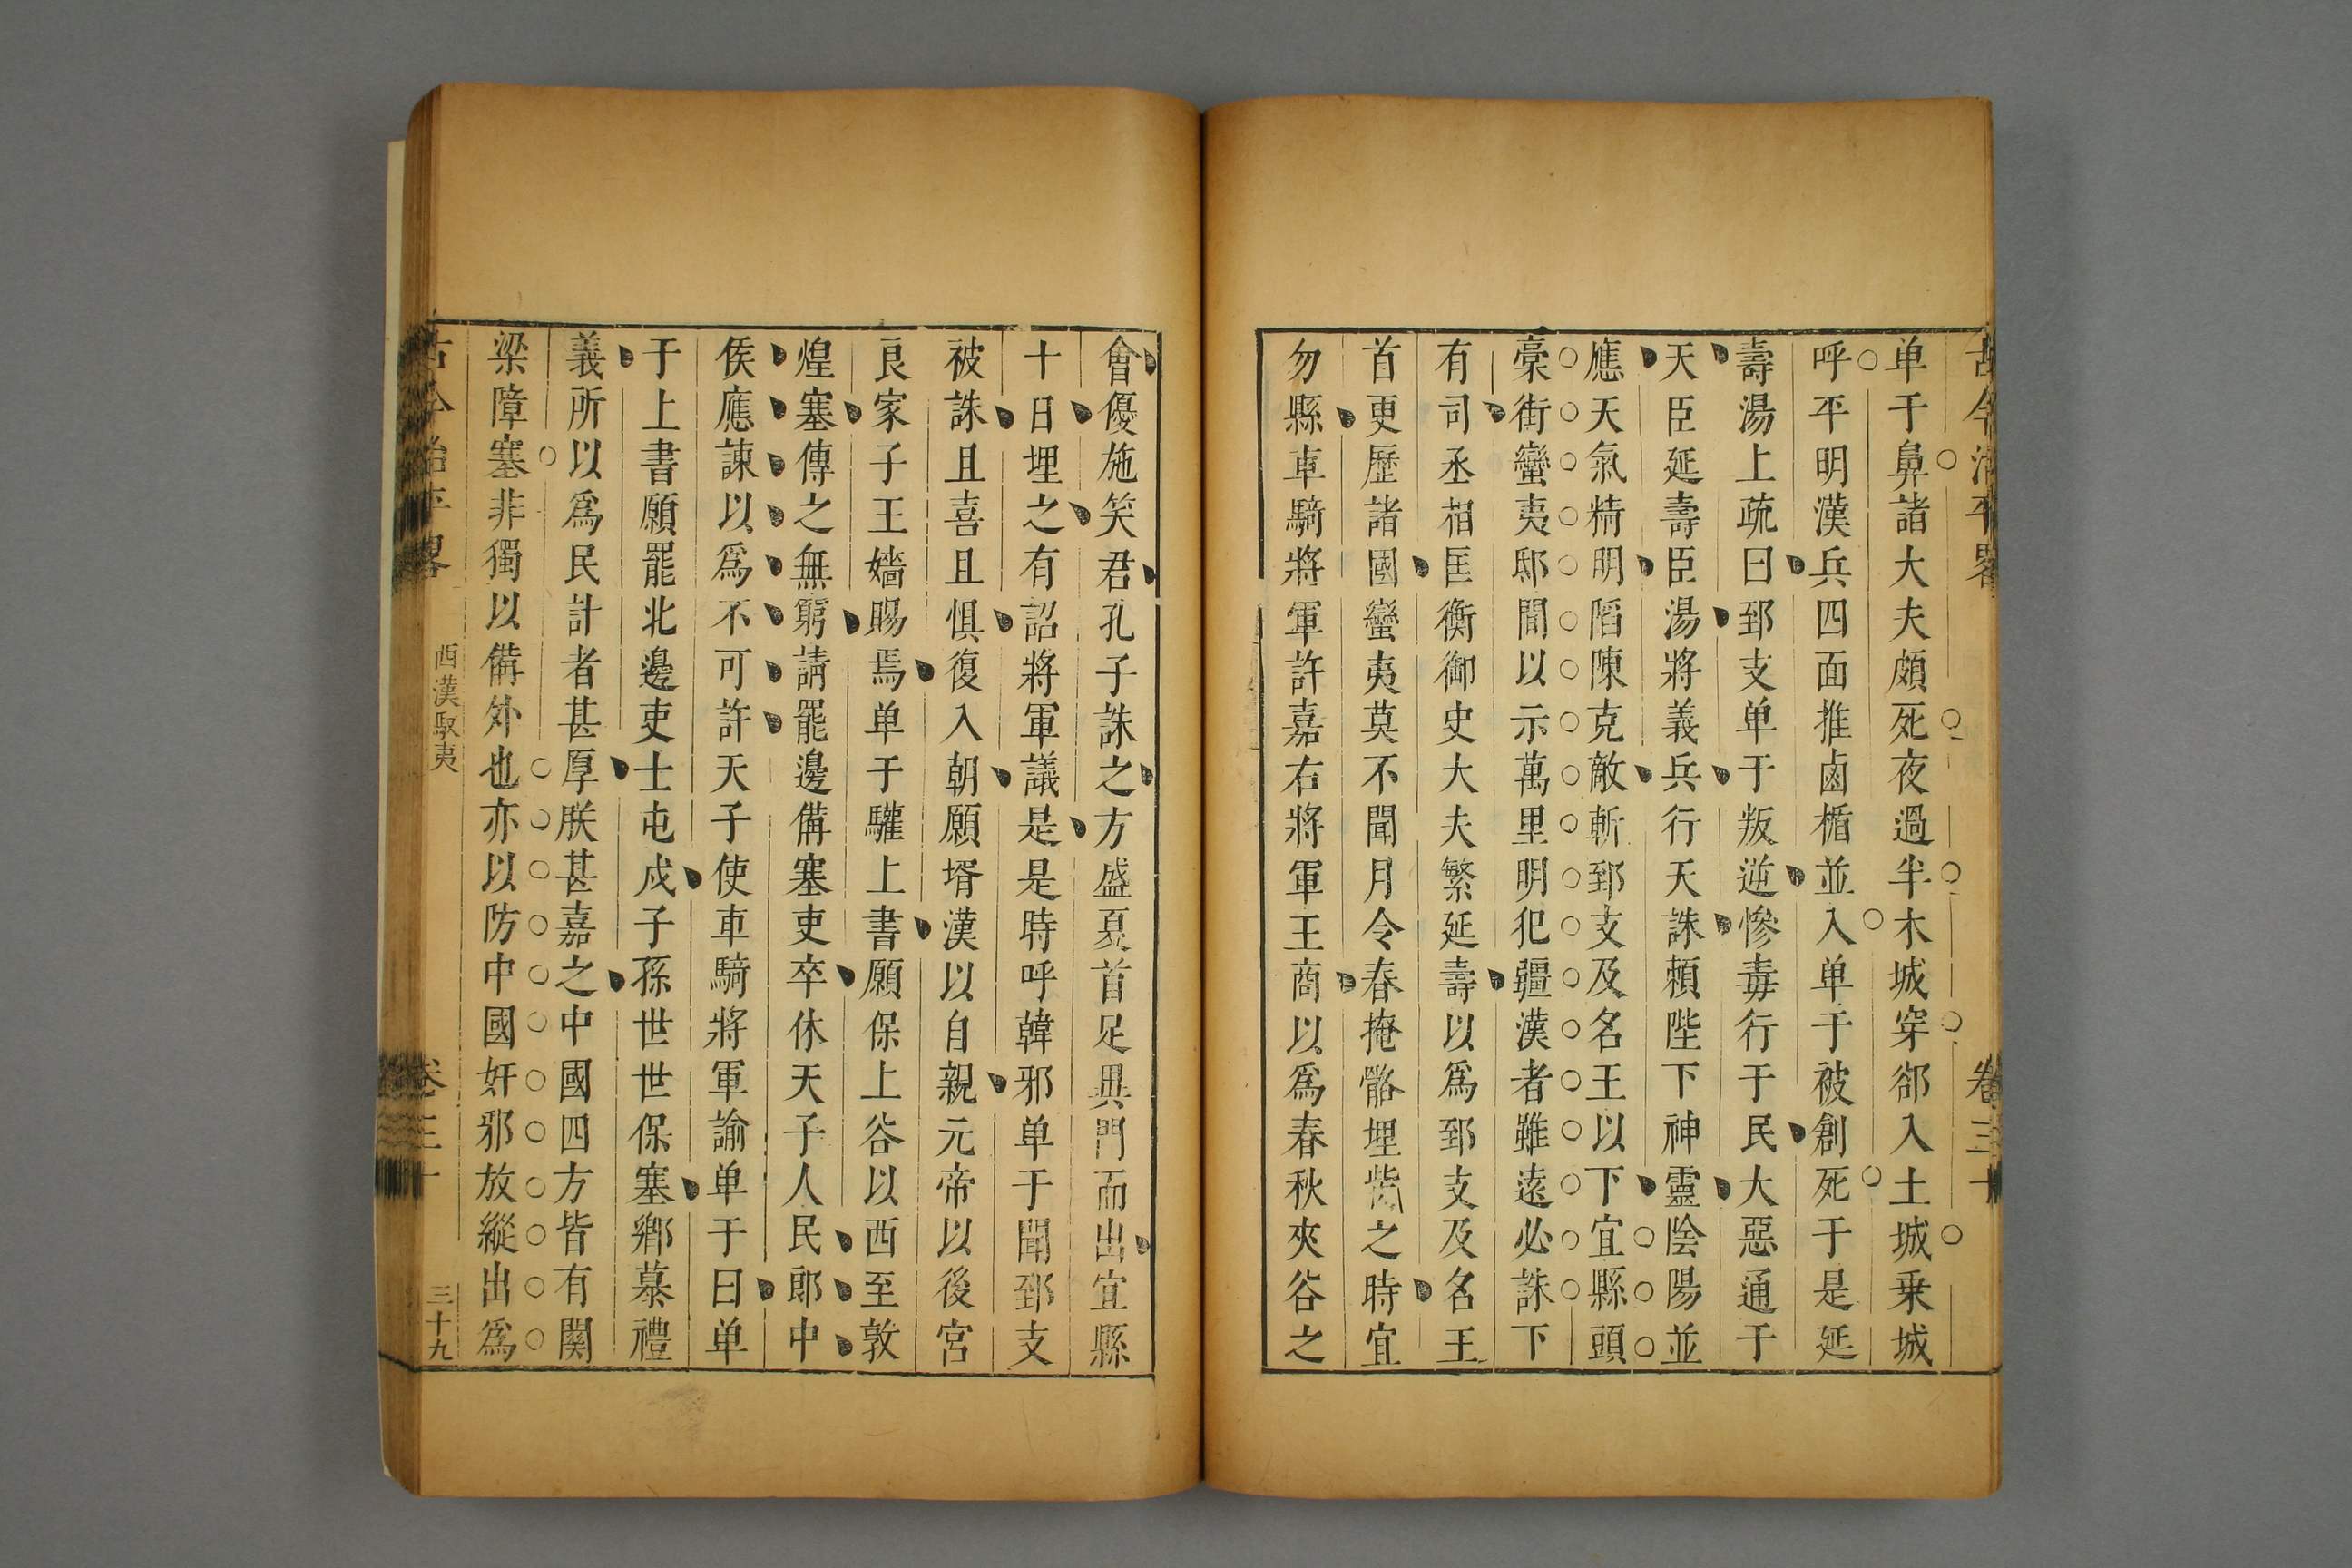 古今治平畧
卷三十
单于鼻諸大夫頗死夜過半木城穿郤入土城乗城
呼平明漢兵四面推鹵楯並入单于被創死于是延
壽湯上疏曰郅支单于叛逆慘毒行于民大惡通于
天臣延壽臣湯將義兵行天誅頼陛下神靈陰陽並
應天氣精明陷陳克敵斬郅支及名王以下宜縣頭
槀街蠻夷邸間以示萬里明犯疆漢者雖遠必誅下
有司丞相匡衡御史大夫繁延壽以爲郅支及名王
首更歷諸國蠻夷莫不聞月令春掩骼埋胔之時宜
勿縣車騎將軍許嘉右將軍王商以爲春秋夾谷之
會優施笑君孔子誅之方盛夏首足異門而出宜縣
十日埋之有詔將軍議是是時呼韓邪单于聞郅支
被誅且喜且惧復入朝願壻漢以自親元帝以後宮
良家子王嬙賜焉单于驩上書願保上谷以西至敦
煌塞傳之無窮請罷邊備塞吏卒休天子人民郎中
侯應諫以爲不可許天子使車騎將軍諭单于曰单
于上書願罷北邊吏士屯戍子孫世世保塞鄉慕禮
義所以爲民計者甚厚朕甚嘉之中國四方皆有関
梁障塞非獨以備外也亦以防中國奸邪放縱出爲
古今治平畧
西漢馭夷
卷三十
三十九